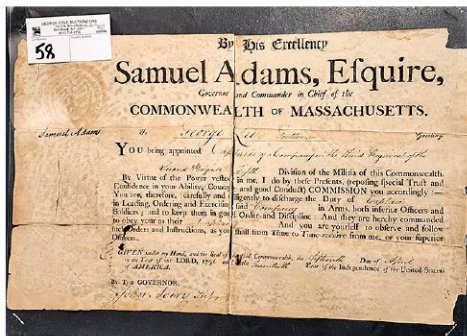 58
By His Excellency
Samuel Adams, Esquire,
Governor and Commander in Chief of the
COMMONWEALTH OF MASSACHUSETTS.
Samuel Adams To George Greeting
YOU being appointed Captain of a Company in the third Regiment of the
Division of the Militia of this Commonwealth.
By Virtue of the Power vested in me, I do by these Presents, (reposing special Trust and
Confidence in your Ability, Courage and good Conduct) COMMISSION you accordingly:—
You are, therefore, carefully and diligently to discharge the Duty of Captain
in Leading, Ordering and Exercising said Company in Arms, both inferior Officers and
Soldiers; and to keep them in good Order and Discipline: And they are hereby commanded
to obey you as their And you are yourself to observe and follow
such Orders and Instructions, as you shall from Time to Time receive from me, or your superior
Officers.
GIVEN under my Hand, and the Seal of the said Commonwealth, the fifteenth Day of April
in the Year of our LORD, 1796 Year of the Independence of the United States
of AMERICA.
By the GOVERNOR.